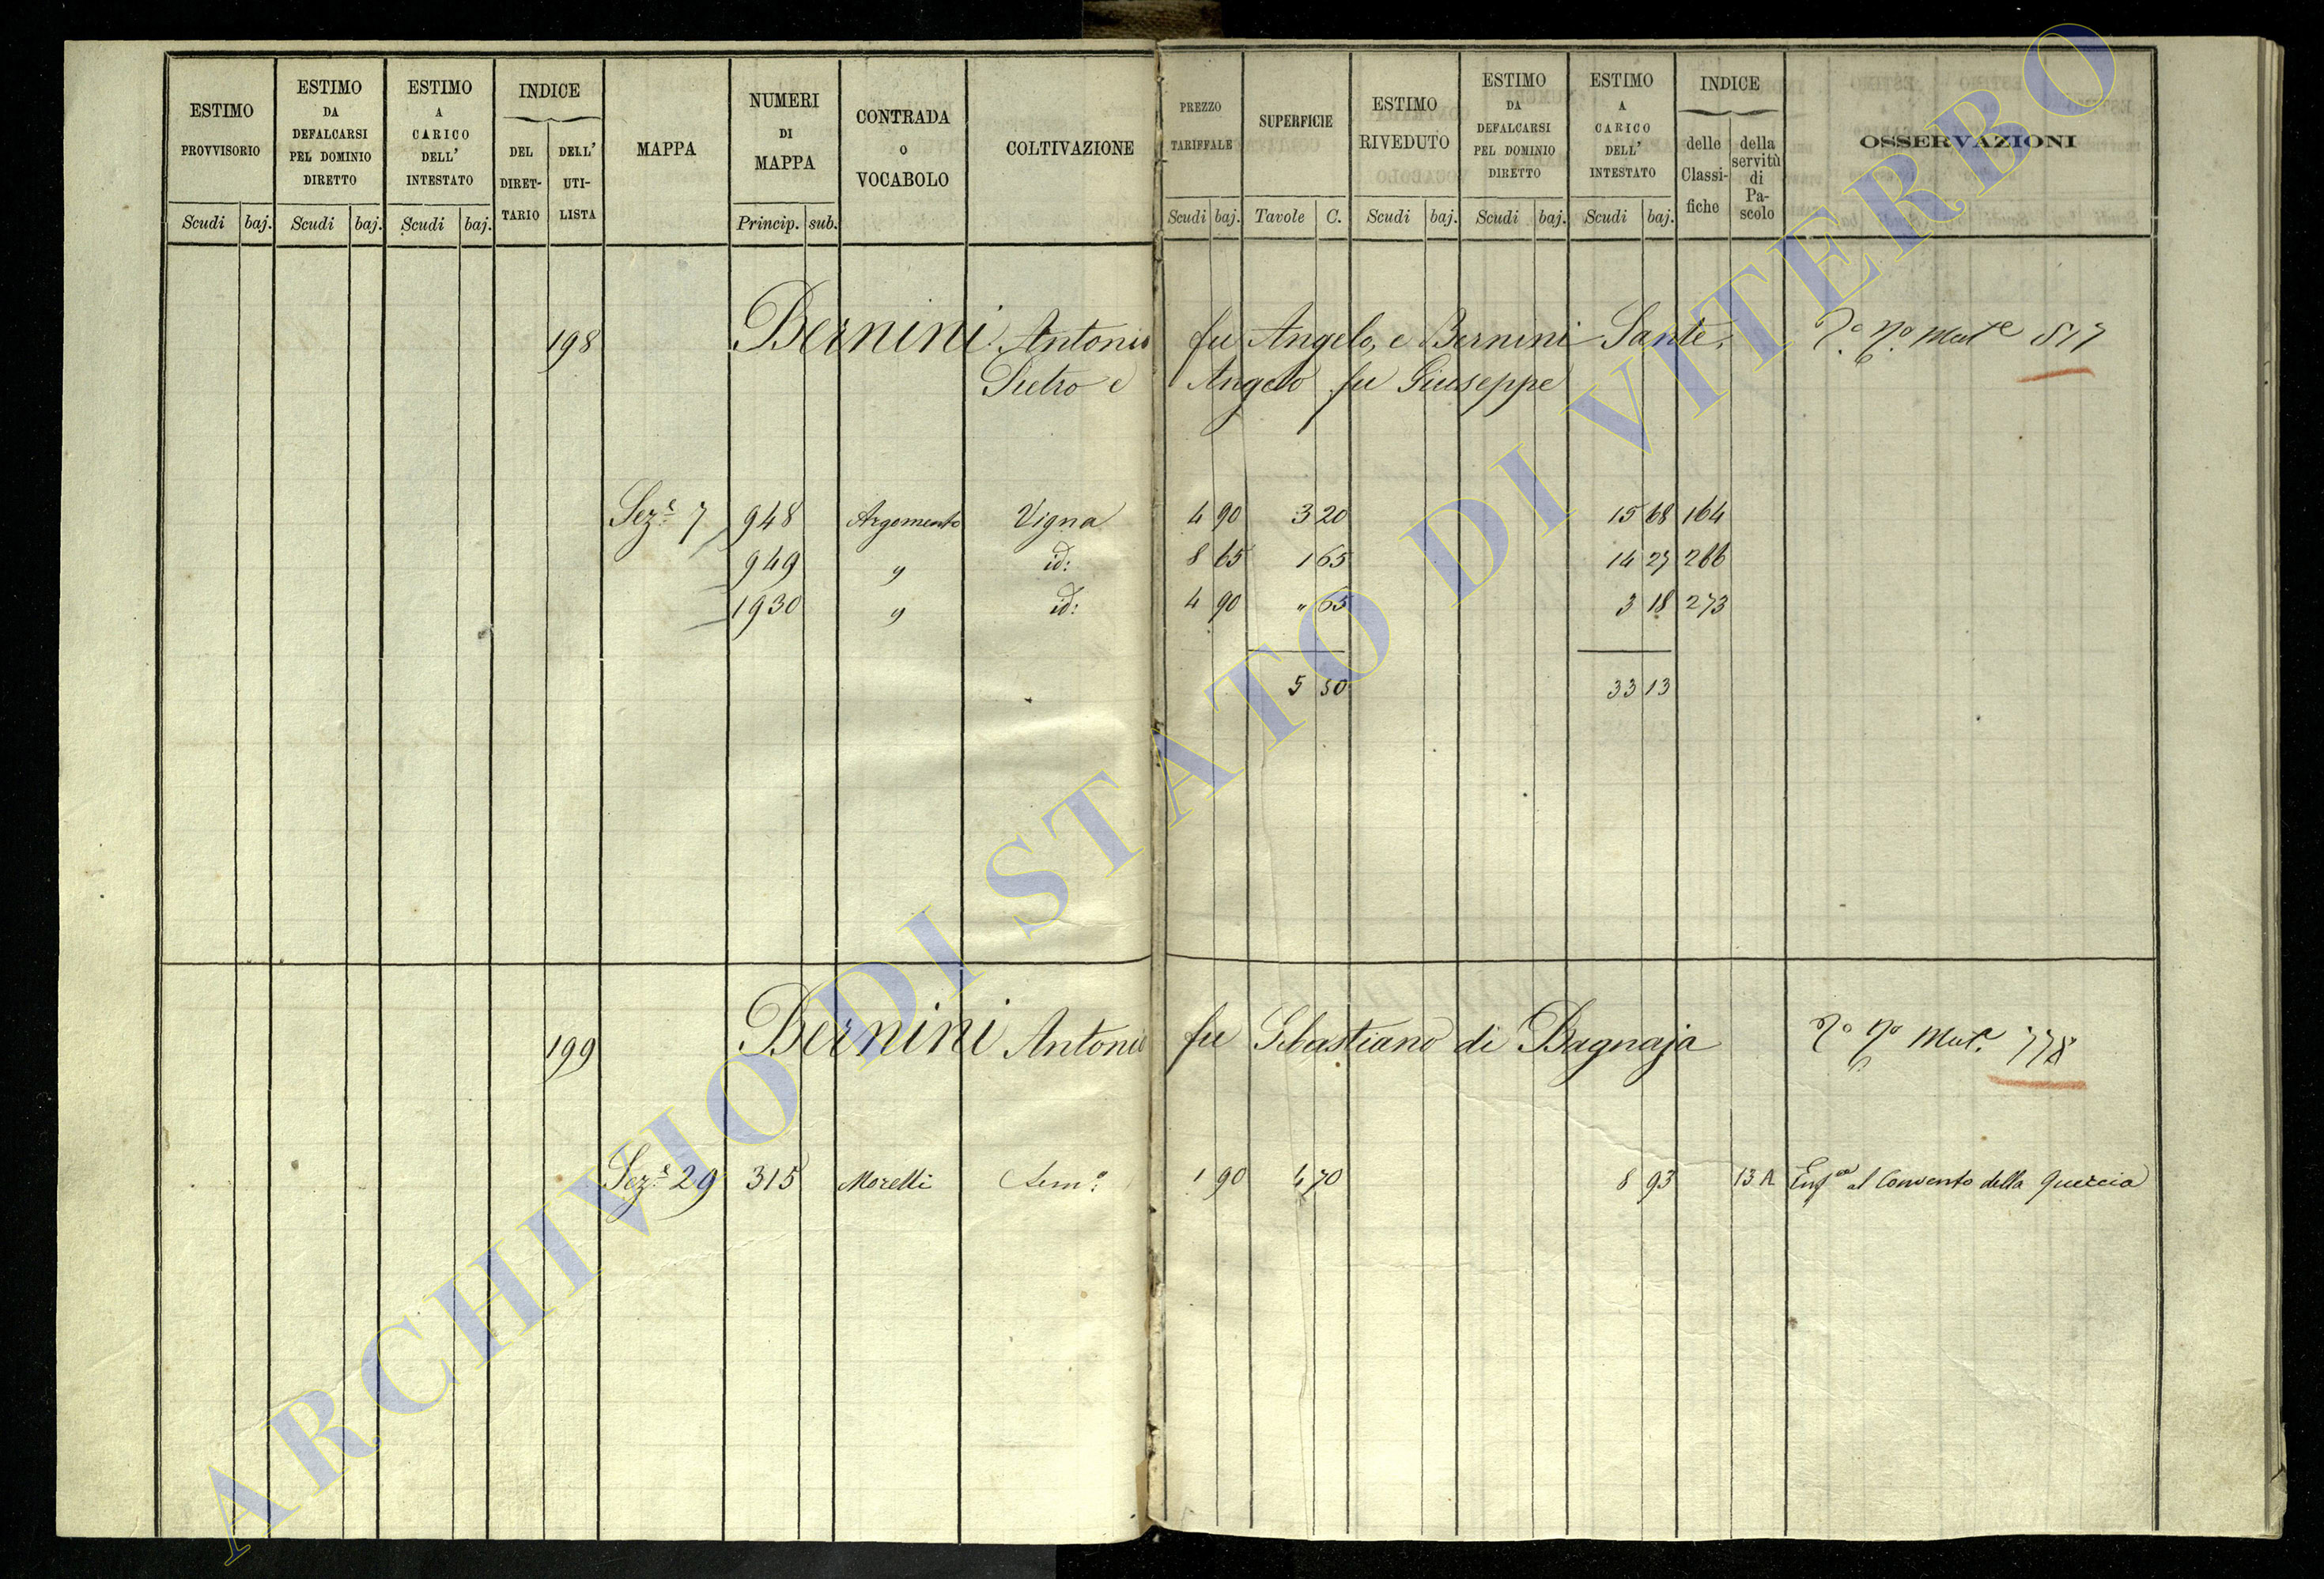 ESTIMO PROVVISORIO
ESTIMO DA DEFALCARSI PEL DOMINIO DIRETTO
ESTIMO A CARICO DELL' INTESTATO
INDICE
DEL DIRET-TARIO
DELL' UTI-LISTA
MAPPA
NUMERI DI MAPPA
CONTRADA O VOCABOLO
COLTIVAZIONE
PREZZO TARIFFALE
SUPERFICIE
ESTIMO RIVEDUTO
ESTIMO DA DEFALCARSI PEL DOMINIO DIRETTO
ESTIMO A CARICO DELL' INTESTATO
INDICE
delle Classi-fiche
della servitù di Pa-scolo
OSSERVAZIONI
Scudi baj. Scudi baj. Scudi baj. Princip. sub. Scudi baj. Tavole C. Scudi baj. Scudi baj. Scudi baj.
198 Bernini Antonio fu Angelo, e Bernini Sante,
Pietro e Angelo fu Giuseppe
Sez.e 7 948 Argomento Vigna 4 90 3 20 15 68 164
949 " id: 8 65 1 65 14 27 266
1930 " id: 4 90 " 65 3 18 273
5 50 33 13
199 Bernini Antonio fu Sebastiano di Bagnaja 778
Sez.e 29 315 Morelli Sem.o 1 90 4 70 8 93 13 A Enf.ca al Convento della Quercia
ARCHIVIO DI STATO DI VITERBO